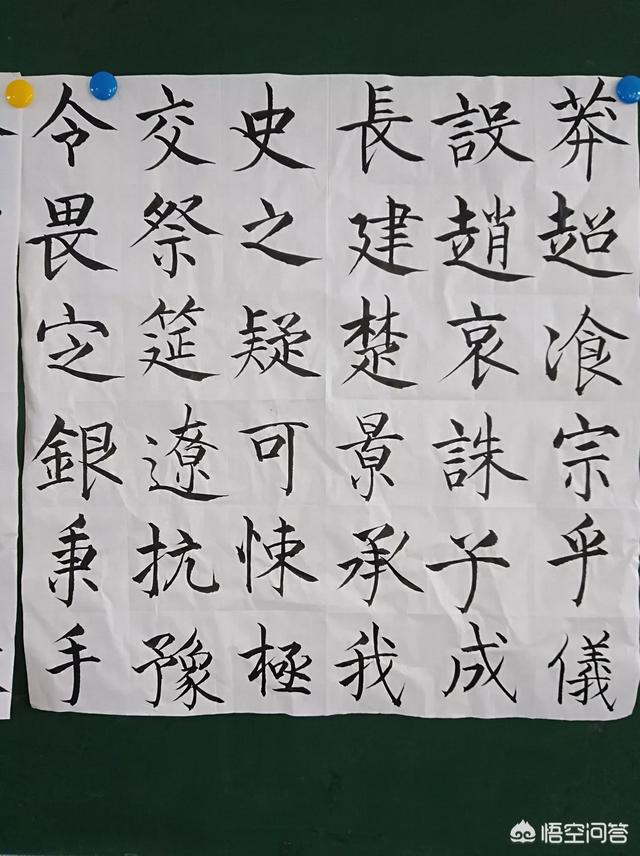 莽超飡宗乎儀
設趙哀誅子成
長建楚景承我
史之疑可悚極
交祭筵遼抗豫
令畏㝎銀秉手
悟空问答